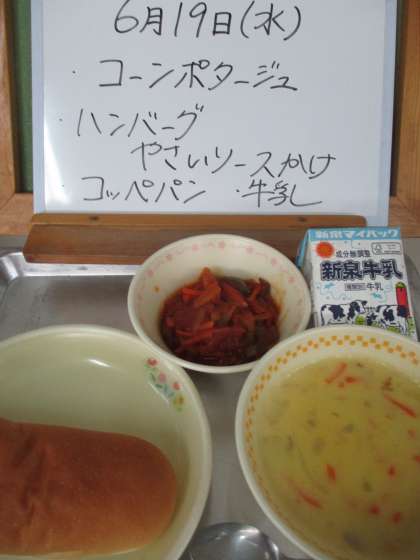 6月19日(水)
・コーンポタージュ
・ハンバーグ
やさいソースかけ
・コッペパン ・牛乳
新泉マイパック
成分無調整
新泉牛乳
種類別 牛乳